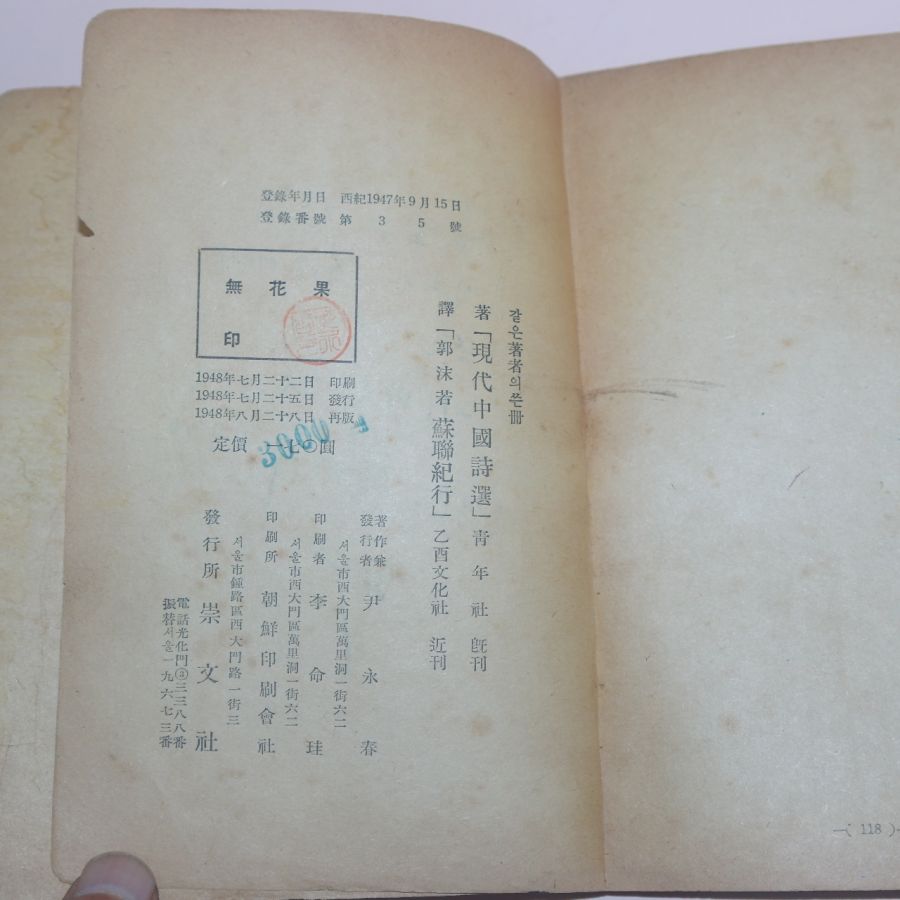 登錄年月日 西紀1947年9月15日
登錄番號 第 3 5 號
無花果
印
1948年七月二十二日 印刷
1948年七月二十五日 發行
1948年八月二十八日 再版
定價 一七〇圓
3000
같은著者의쓴冊
著「現代中國詩選」靑年社 旣刊
譯「郭沫若 蘇聯紀行」乙酉文化社 近刊
著作兼
發行者 尹永春
서울市西大門區萬里洞一街六二
印刷者 李命珪
서울市西大門區萬里洞一街六二
印刷所 朝鮮印刷會社
서울市鍾路區西大門路一街三
發行所 崇文社
電話光化門③三三八八番
振替서울一九六七三番
—( 118 )—